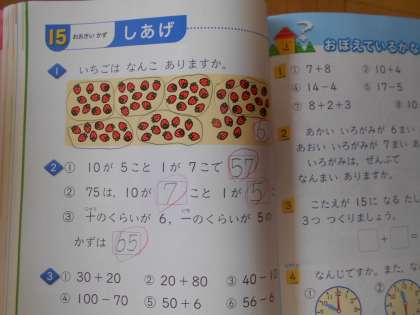 15 おおきい かず しあげ
1 いちごは なんこ ありますか。
2 ① 10が 5こと 1が 7こで 57
② 75は、10が 7 こと 1が 5
③ 十のくらいが 6、一のくらいが 5の
かずは 65
3 ① 30+20 ② 20+80 ③ 40-10
④ 100-70 ⑤ 50+6 ⑥ 56-6
おぼえているかな
1 ① 7+8 ② 10+4
④ 14-4 ⑤ 17-5
⑦ 8+2+3 ⑧ 10
2 あかい いろがみが 6まい
あおい いろがみが 7まい あ
いろがみは、ぜんぶで
なんまい ありますか。
3 こたえが 15に なる たし
3つ つくりましょう。
+
4 なんじですか。また、な